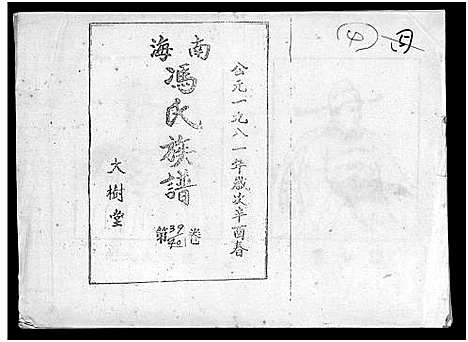 ④ 月
公元一九八一年歲次辛酉春
南海
馮氏族譜
第39/40卷
大樹堂